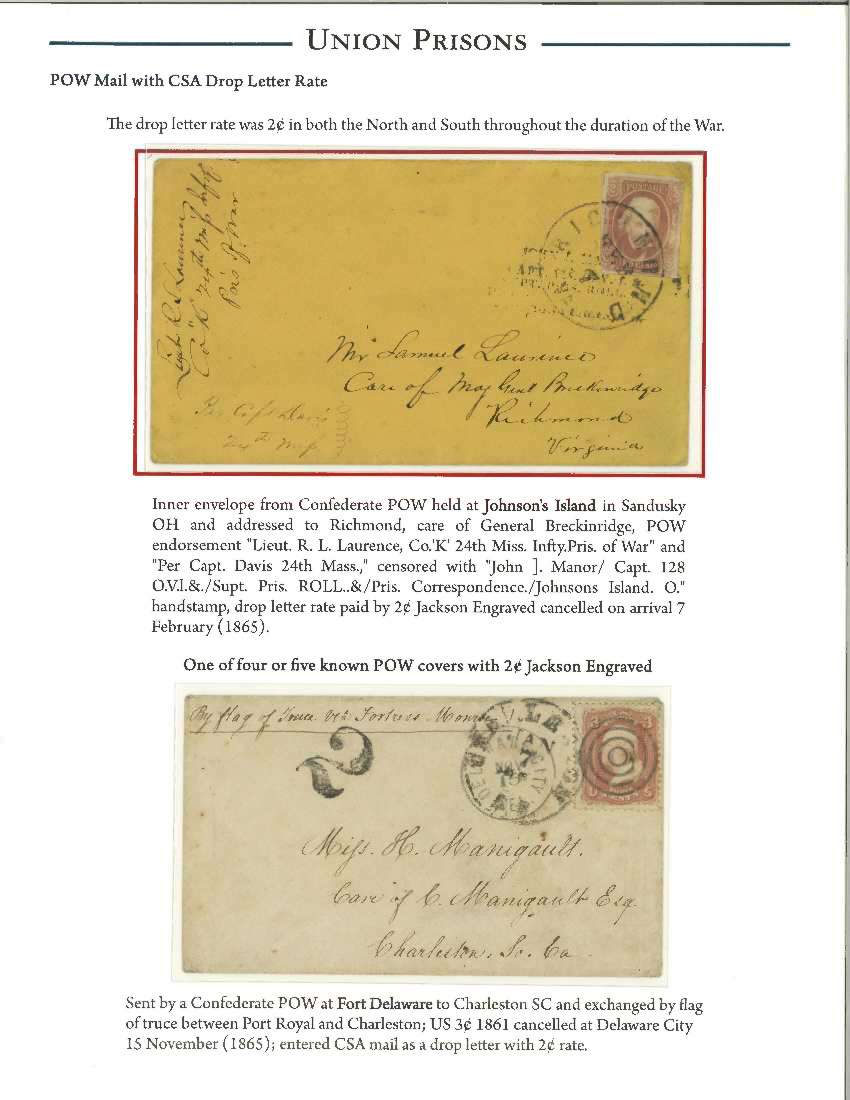 UNION PRISONS
POW Mail with CSA Drop Letter Rate
The drop letter rate was 2¢ in both the North and South throughout the duration of the War.
Lieut R. L. Laurence
Co "K" 24th Miss Infty
Pris of War
POSTAGE
RICHMOND
Mr Samuel Laurence
Care of Maj Genl Breckinridge
Richmond
Virginia
Per Capt Davis
24th Miss
Inner envelope from Confederate POW held at Johnson's Island in Sandusky
OH and addressed to Richmond, care of General Breckinridge, POW
endorsement "Lieut. R. L. Laurence, Co.'K' 24th Miss. Infty.Pris. of War" and
"Per Capt. Davis 24th Mass.," censored with "John ]. Manor/ Capt. 128
O.V.I.&./Supt. Pris. ROLL..&/Pris. Correspondence./Johnsons Island. O."
handstamp, drop letter rate paid by 2¢ Jackson Engraved cancelled on arrival 7
February (1865).
One of four or five known POW covers with 2¢ Jackson Engraved
By flag of Truce via Fortress Monroe
2
DELAWARE CITY
NOV
15
DEL
3 3
Miss. H. Manigault.
Care of C. Manigault Esq.
Charleston. So. Ca.
Sent by a Confederate POW at Fort Delaware to Charleston SC and exchanged by flag
of truce between Port Royal and Charleston; US 3¢ 1861 cancelled at Delaware City
15 November (1865); entered CSA mail as a drop letter with 2¢ rate.